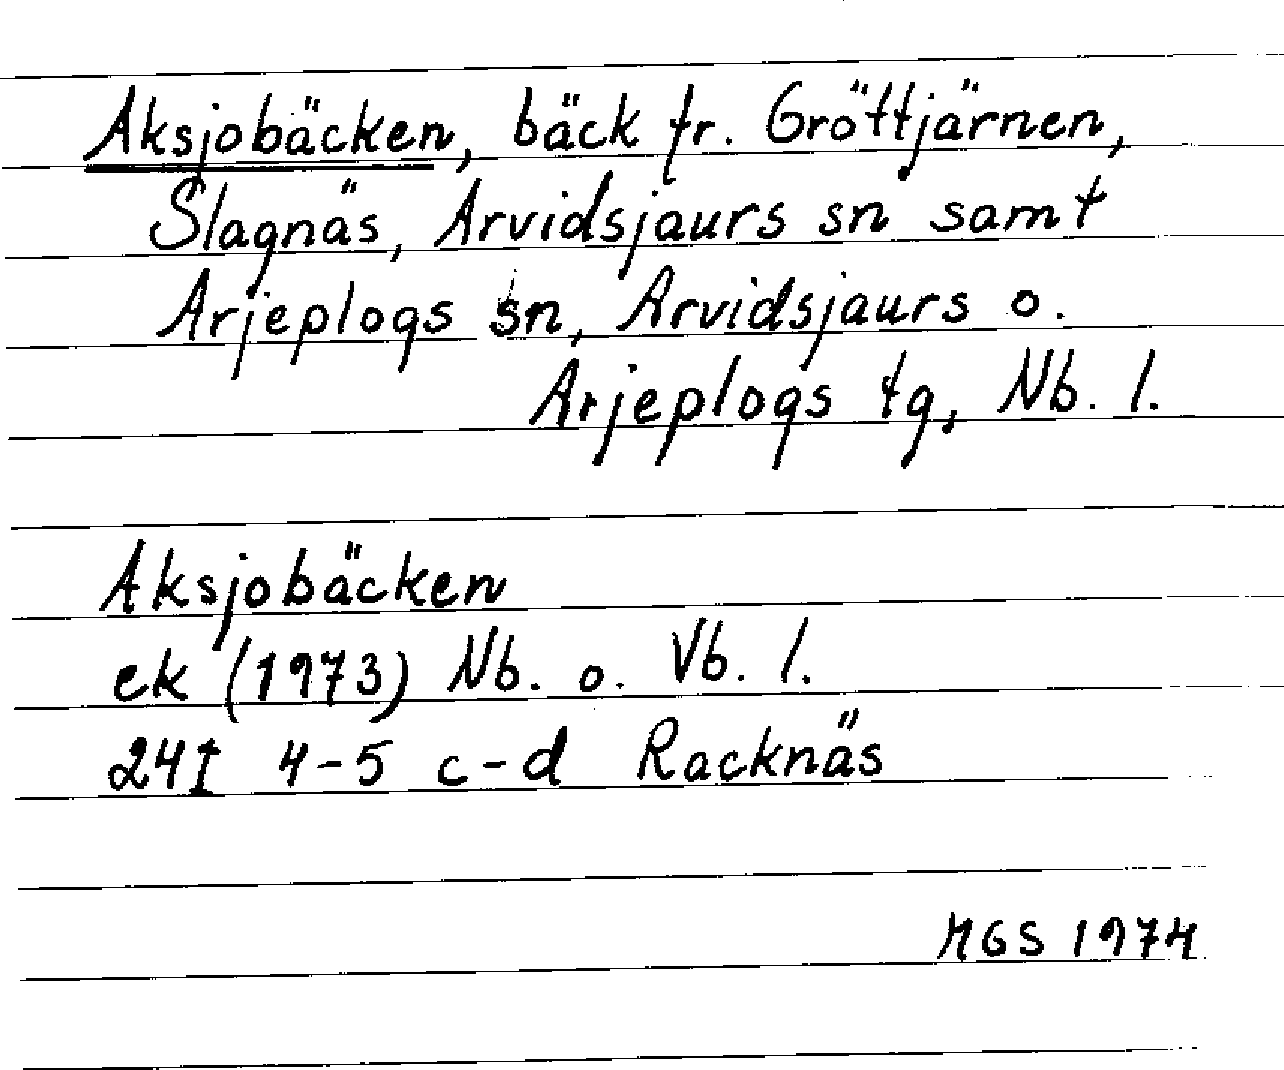 Aksjobäcken, bäck fr. Gröttjärnen,
Slagnäs, Arvidsjaurs sn samt
Arjeplogs sn, Arvidsjaurs o.
Arjeplogs tg, Nb. l.
Aksjobäcken
ek (1973) Nb. o. Vb. l.
24I 4-5 c-d Racknäs
MGS 1974